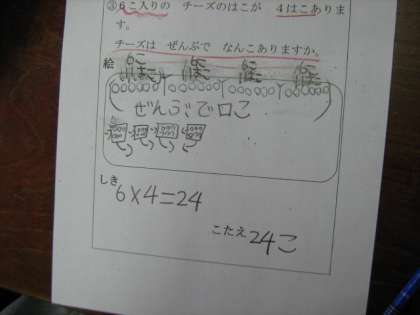 ③6こ入りの チーズのはこが 4はこありま
す。
チーズは ぜんぶで なんこありますか。
絵
6こ
ぜんぶで口こ
しき
6×4=24
こたえ 24こ